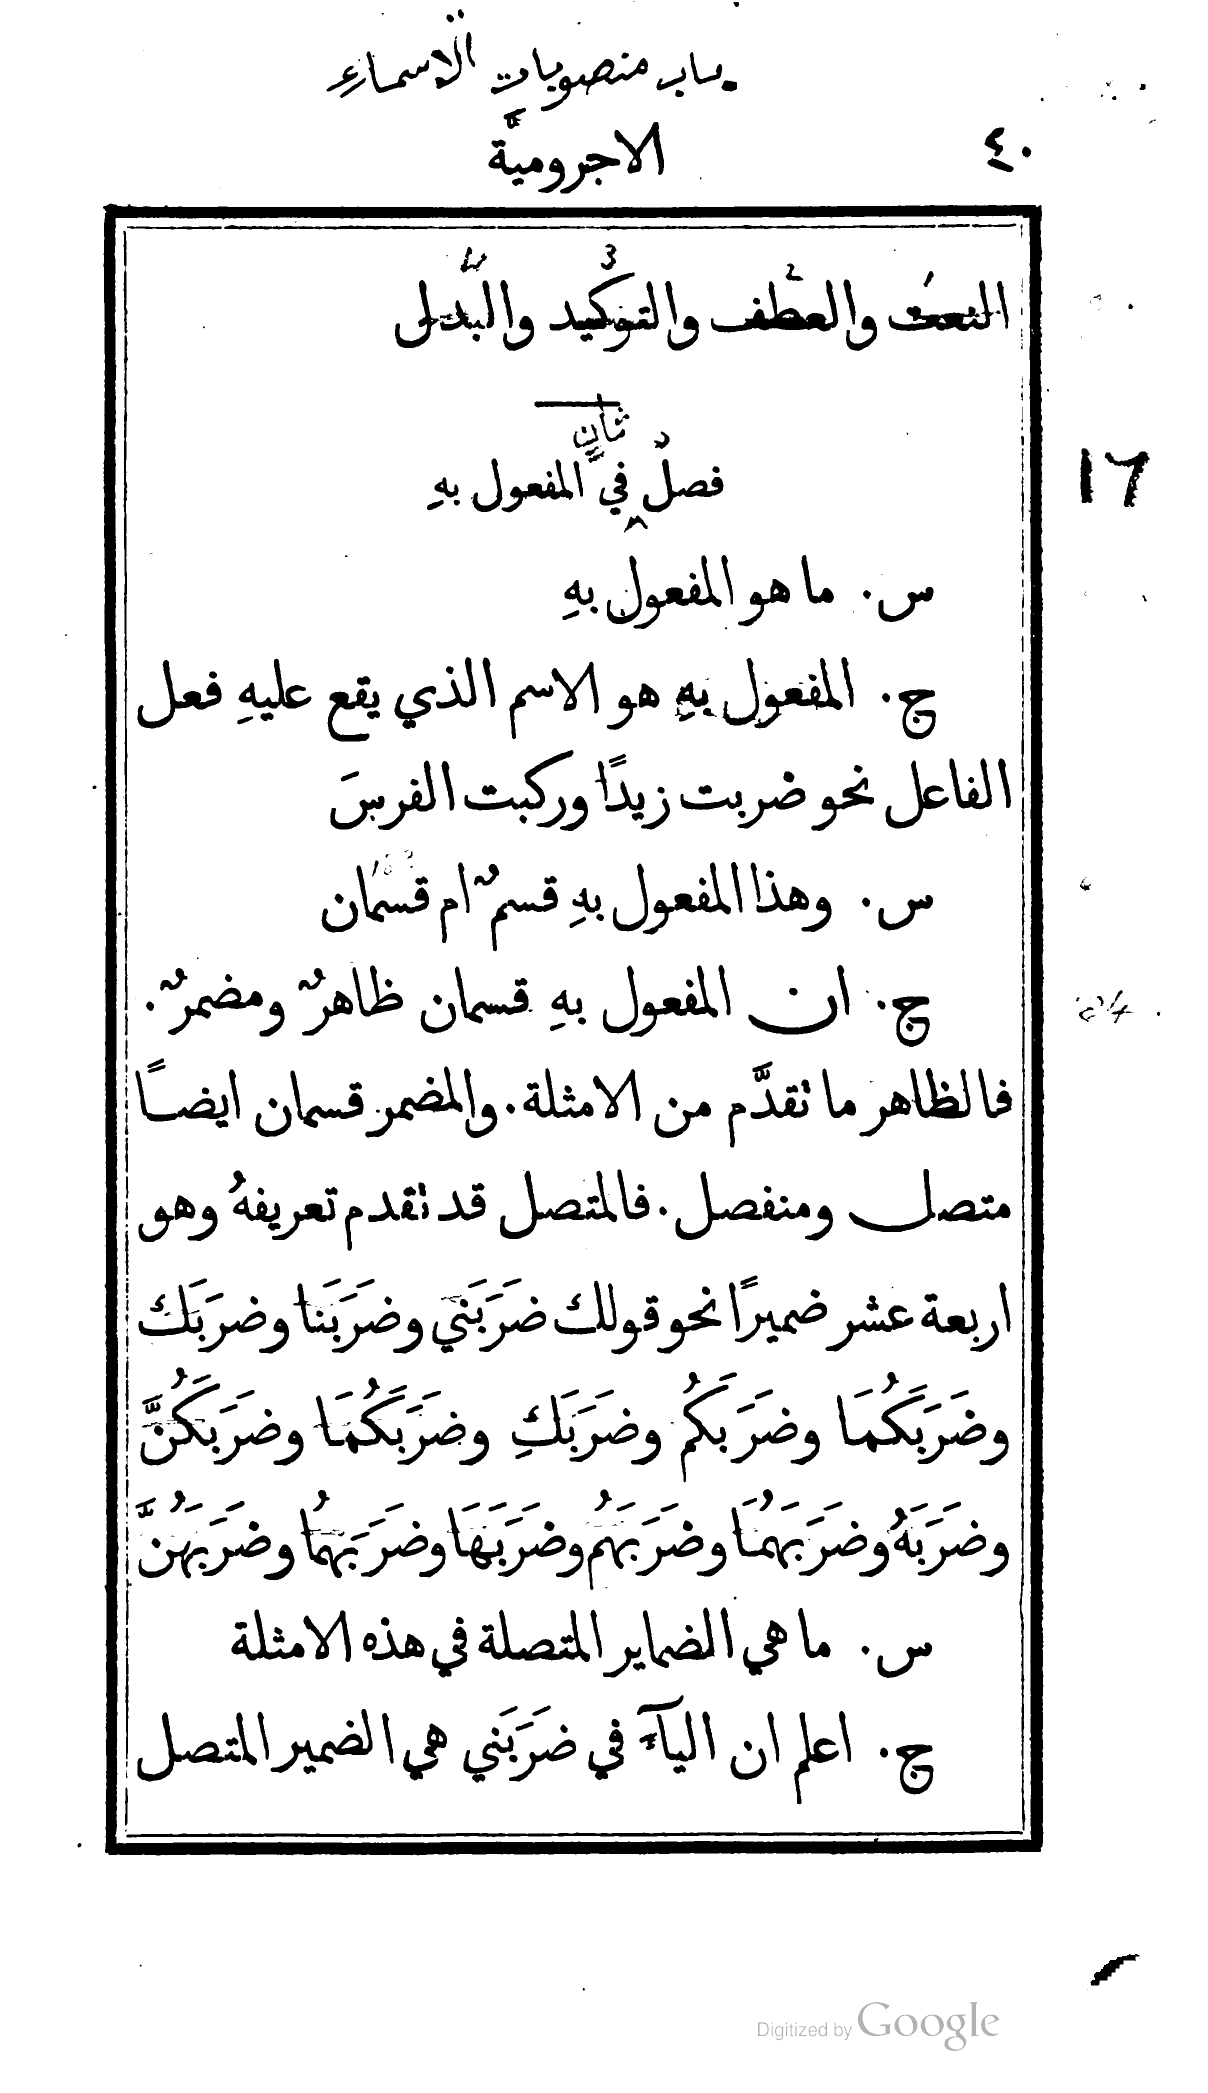 باب منصوبات الاسماء
٤٠
الاجروميَّة
1 2 3
النعت والعطف والتوكيد والبدل
ثانٍ
فصلٌ في المفعول بهِ
١٦
س. ما هو المفعول بهِ
ج. المفعول بهِ هو الاسم الذي يقع عليهِ فعل
الفاعل نحو ضربت زيدًا وركبت الفرسَ
س. وهذا المفعول بهِ قسمٌ ام قسمان
ج. ان المفعول بهِ قسمان ظاهرٌ ومضمرٌ.
فالظاهر ما تقدَّم من الامثلة. والمضمر قسمان ايضًا
متصل ومنفصل. فالمتصل قد تقدم تعريفهُ وهو
اربعة عشر ضميرًا نحو قولك ضَرَبَني وضَرَبَنا وضرَبَك
وضَرَبَكُمَا وضَرَبَكُم وضَرَبَكِ وضَرَبَكُمَا وضَرَبَكُنَّ
وضَرَبَهُ وضَرَبَهُمَا وضَرَبَهُم وضَرَبَهَا وضَرَبَهُما وضَرَبَهُنَّ
س. ما هي الضماير المتصلة في هذه الامثلة
ج. اعلم ان اليآء في ضَرَبَني هي الضمير المتصل
Digitized by Google